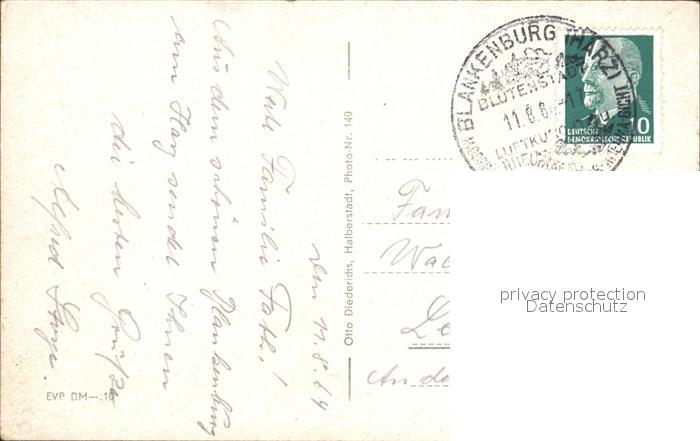 den 11.8.64
Werte Familie
Aus dem schönen Blankenburg
am Harz sendet Ihnen
die besten Grüße
Alfred
EVP DM —.10
Otto Diederichs, Halberstadt, Photo-Nr. 149
BLANKENBURG (HARZ)
BLÜTENSTADT
11.8.6
LUFTKURORT
DEUTSCHE
DEMOKRATISCHE REPUBLIK
10
Fam
privacy protection
Datenschutz